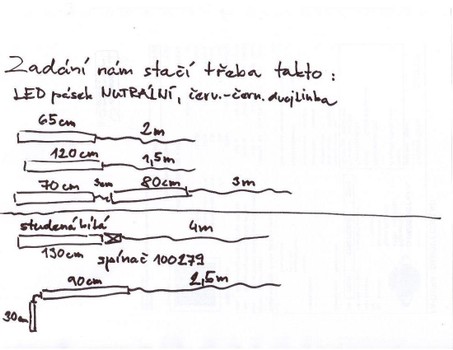 Zadání nám stačí třeba takto:
LED pásek NUTRÁLNÍ, červ.-čern. dvojlinka
65cm 2m
120cm 1,5m
70cm 3cm 80cm 3m
studená bílá 4m
130cm spínač 100279
90cm 2,5m
30cm